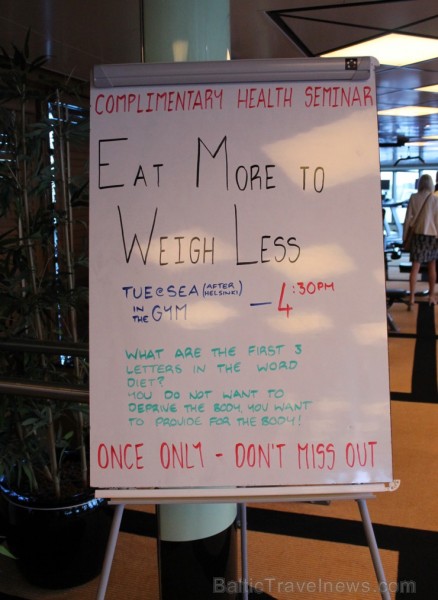 COMPLIMENTARY HEALTH SEMINAR
EAT MORE TO
WEIGH LESS
TUE@SEA (AFTER HELSINKI)
IN THE GYM – 4:30PM
WHAT ARE THE FIRST 3
LETTERS IN THE WORD
DIET?
YOU DO NOT WANT TO
DEPRIVE THE BODY, YOU WANT
TO PROVIDE FOR THE BODY!
ONCE ONLY - DON'T MISS OUT
BalticTravelnews.com